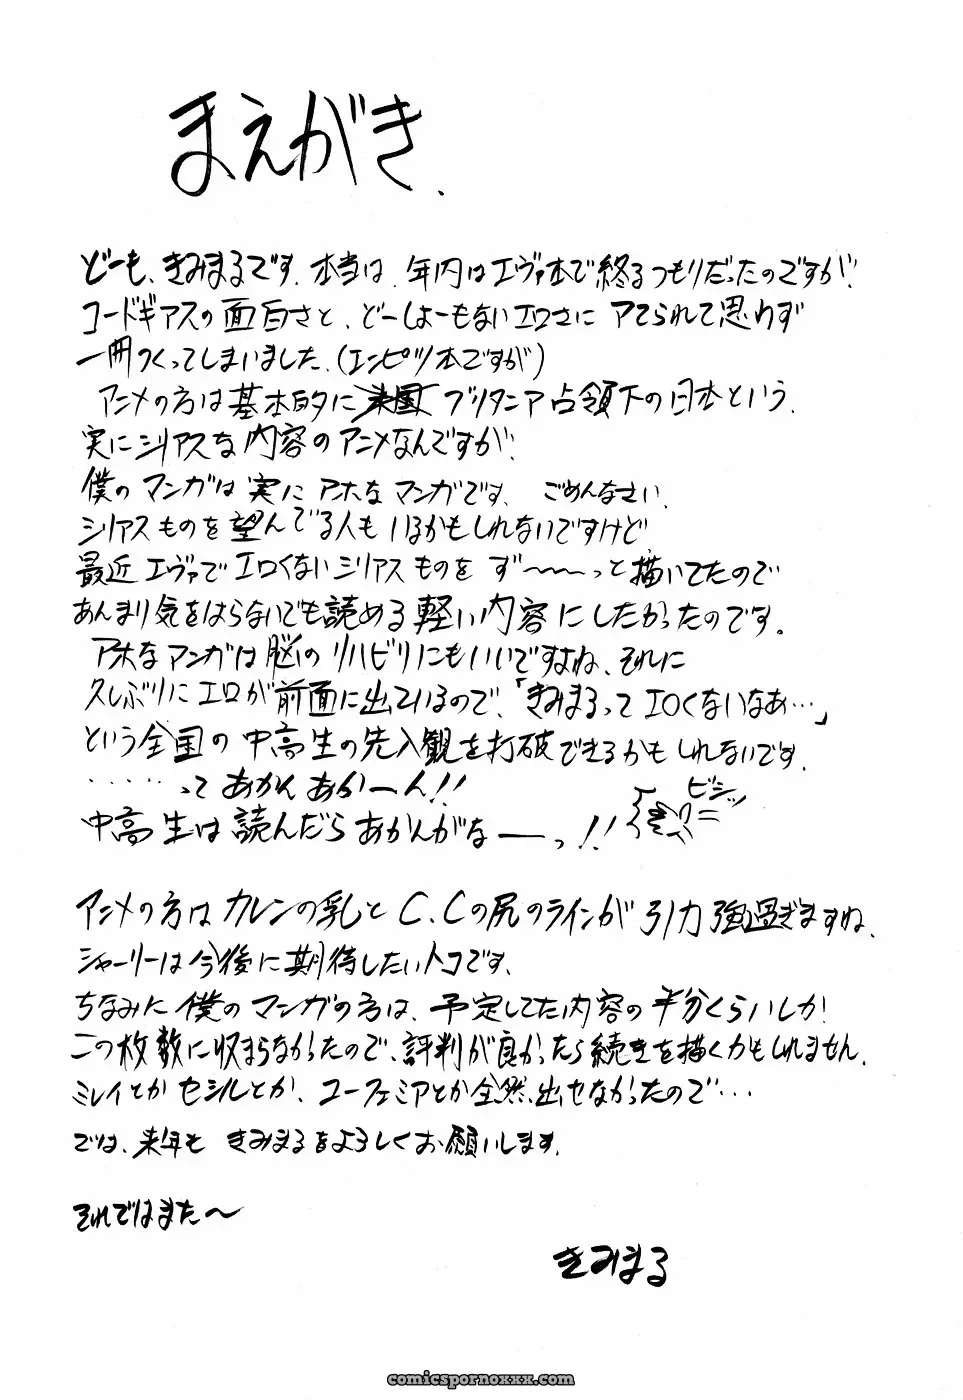 まえがき.
どーも、きみまるです.本当は、年内はエヴァ本で終るつもりだったのですが、
コードギアスの面白さと、どーしょーもないエロさに アてられて思わず
一冊つくってしまいました.(エンピツ本ですが)
アニメの方は基本的に米国ブリタニア占領下の日本という、
実にシリアスな内容のアニメなんですが、
僕のマンガは実に アホなマンガです、ごめんなさい.
シリアスものを望んでる人もいるかもしれないですけど
最近エヴァでエロくないシリアスものを ず〜〜〜っと描いてたので
あんまり気をはらないでも読める軽い内容にしたかったのです。
アホなマンガは脳のリハビリにもいいですよね、それに
久しぶりにエロが前面に出ているので、「きみまるってエロくないなあ…」
という全国の中高生の先入観を打破できるかもしれないです.
・・・・・・ってあかんあかーん!!
ビシッ
中高生は読んだらあかんがなーっ!!
アニメの方はカレンの乳とC.Cの尻のラインが引力強過ぎますね.
シャーリーは今後に期待したいトコです.
ちなみに僕のマンガの方は、予定してた内容の半分くらいしか
この枚数に収まらなかったので、評判が良かったら続きを描くかもしれません.
ミレイとかセシルとか、ユーフェミアとか全然出せなかったので・・・
では、来年もきみまるをよろしくお願いします.
それではまた〜
きみまる
comicspornoxxx.com